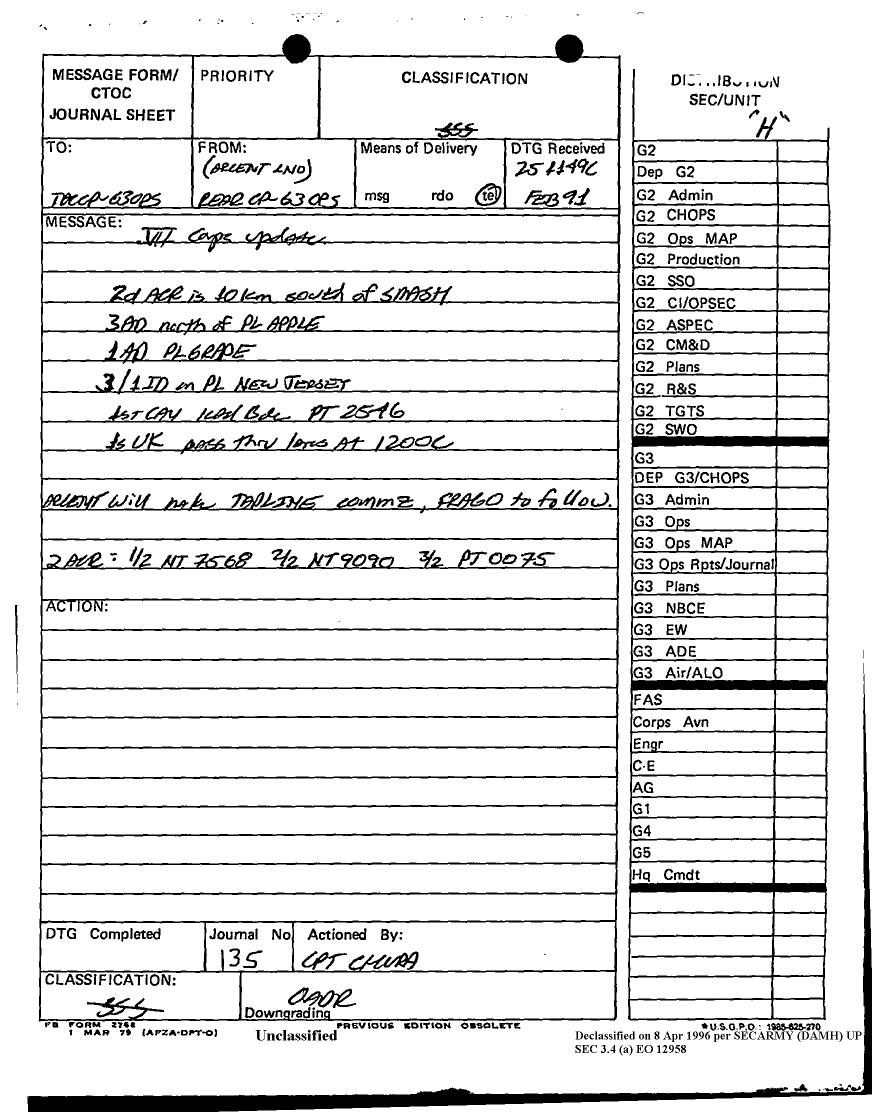 MESSAGE FORM/
CTOC
JOURNAL SHEET
PRIORITY
CLASSIFICATION
SSS
TO:
TOCCP-G3OPS
FROM:
(ARCENT LNO)
REAR CP-G3 OPS
Means of Delivery
msg rdo tel
DTG Received
251149C
FEB 91
MESSAGE:
VII Corps update
2d ACR is 10 km south of SMASH
3AD north of PL APPLE
1AD PL GRAPE
3/1 ID on PL NEW JERSEY
1st CAV lead Bde PT 2546
1s UK pass thru lanes At 1200C
ARCENT will make TAPLINE commz, FRAGO to follow.
2 ACR = 1/2 NT 7568 2/2 NT 9090 3/2 PT 0075
ACTION:
DTG Completed
Journal No
135
Actioned By:
CPT CHURA
CLASSIFICATION:
SSS
OADR
Downgrading
FB FORM 2768
1 MAR 79 (AFZA-DPT-O)
PREVIOUS EDITION OBSOLETE
Unclassified
DISTRIBUTION
SEC/UNIT
"H"
G2
Dep G2
G2 Admin
G2 CHOPS
G2 Ops MAP
G2 Production
G2 SSO
G2 CI/OPSEC
G2 ASPEC
G2 CM&D
G2 Plans
G2 R&S
G2 TGTS
G2 SWO
G3
DEP G3/CHOPS
G3 Admin
G3 Ops
G3 Ops MAP
G3 Ops Rpts/Journal
G3 Plans
G3 NBCE
G3 EW
G3 ADE
G3 Air/ALO
FAS
Corps Avn
Engr
C-E
AG
G1
G4
G5
Hq Cmdt
*U.S.G.P.O.: 1985-625-270
Declassified on 8 Apr 1996 per SECARMY (DAMH) UP
SEC 3.4 (a) EO 12958